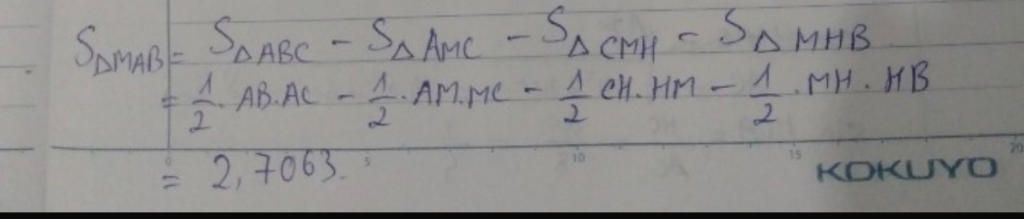 S∆MAB = S∆ABC - S∆AMC - S∆CMH - S∆MHB
= 1/2 . AB.AC - 1/2 . AM.MC - 1/2 CH.HM - 1/2 . MH . HB
0 5 10 15 20
= 2,7063.
KOKUYO